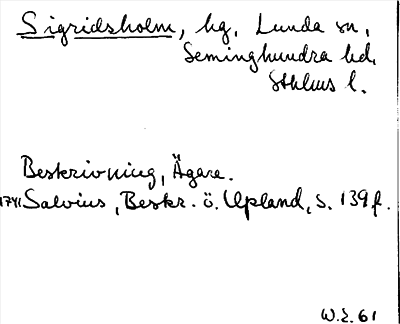 Sigridsholm, hg, Lunda sn,
Seminghundra hd,
Sthlms l.
Beskrivning, Ägare.
1741 Salvius, Beskr. ö. Upland, S. 139 f.
W.E. 61